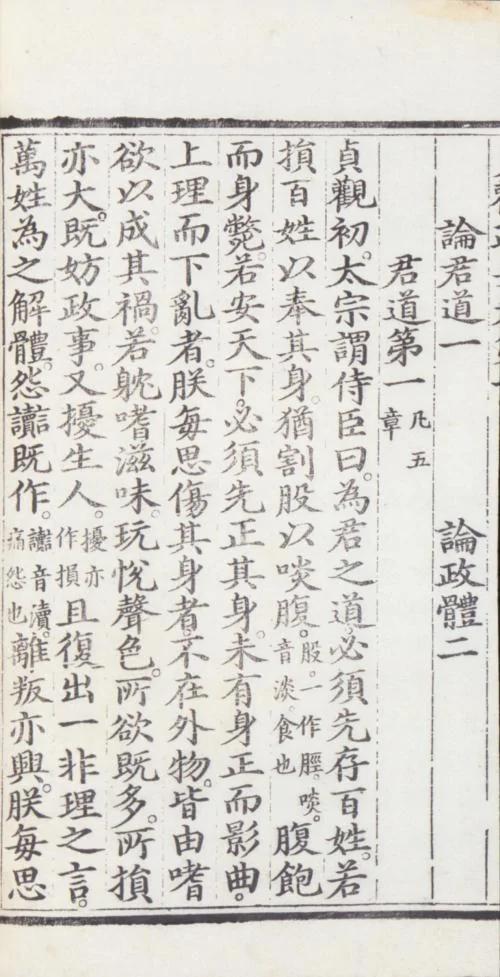 論君道一 論政體二
君道第一 凡五章
貞觀初。太宗謂侍臣曰。為君之道。必須先存百姓。若
損百姓以奉其身。猶割股以啖腹。股。一作脛。啖。音淡。食也 腹飽
而身斃。若安天下。必須先正其身。未有身正而影曲。
上理而下亂者。朕每思傷其身者。不在外物。皆由嗜
欲以成其禍。若躭嗜滋味。玩悅聲色。所欲既多。所損
亦大。既妨政事。又擾生人。擾亦作損 且復出一非理之言。
萬姓為之解體。怨讟既作。讟音瀆。痛怨也 離叛亦興。朕每思